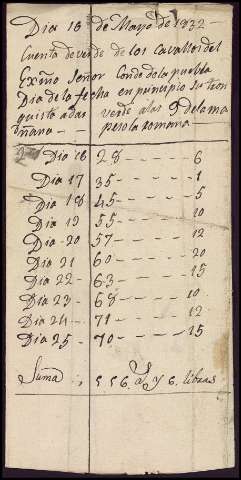 Dia 16 de Mayo de 1832
Cuenta de verde de los Cavallos del
Exmo Señor Conde de la puebla
Dia de la fecha en principio Su tron
quista a dar verde a las 9 de la ma
ñana pesola romana
Dia 16 28 6
Dia 17 35 1
Dia 18 45 5
Dia 19 55 10
Dia 20 57 12
Dia 21 60 20
Dia 22 63 15
Dia 23 68 10
Dia 24 71 12
Dia 25 70 15
Suma 556 @ y 6 libras